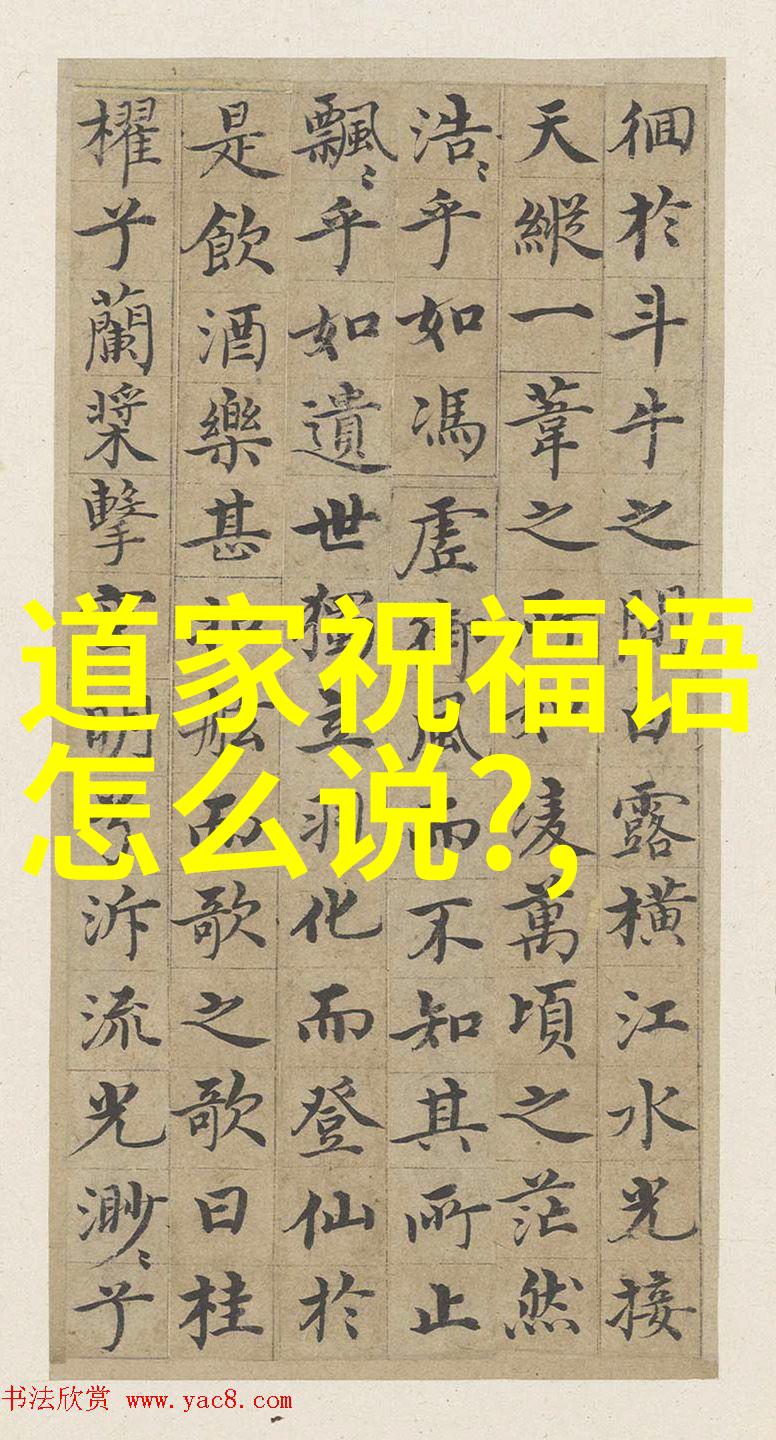 徊於斗牛之間白露橫江水光接
天縱一葦之所如凌萬頃之茫然
浩〻乎如馮虛御風而不知其所止
飄〻乎如遺世獨立羽化而登仙於
是飲酒樂甚扣舷而歌之歌曰桂
櫂兮蘭槳擊空明兮泝流光渺〻兮
道家祝福语
怎么说?,
书法欣赏 www.yac8.com